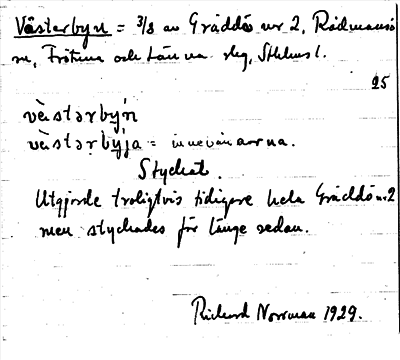 Västerbyn = 3/8 av Gräddö nr 2, Rådmansö
sn, Frötuna och Länna slg, Sthlms l.
25
västərbyn
västərbyja = innevånarna.
Styckat.
Utgjorde troligtvis tidigare hela Gräddö n:2
men styckades för länge sedan.
Richard Norrman 1929.